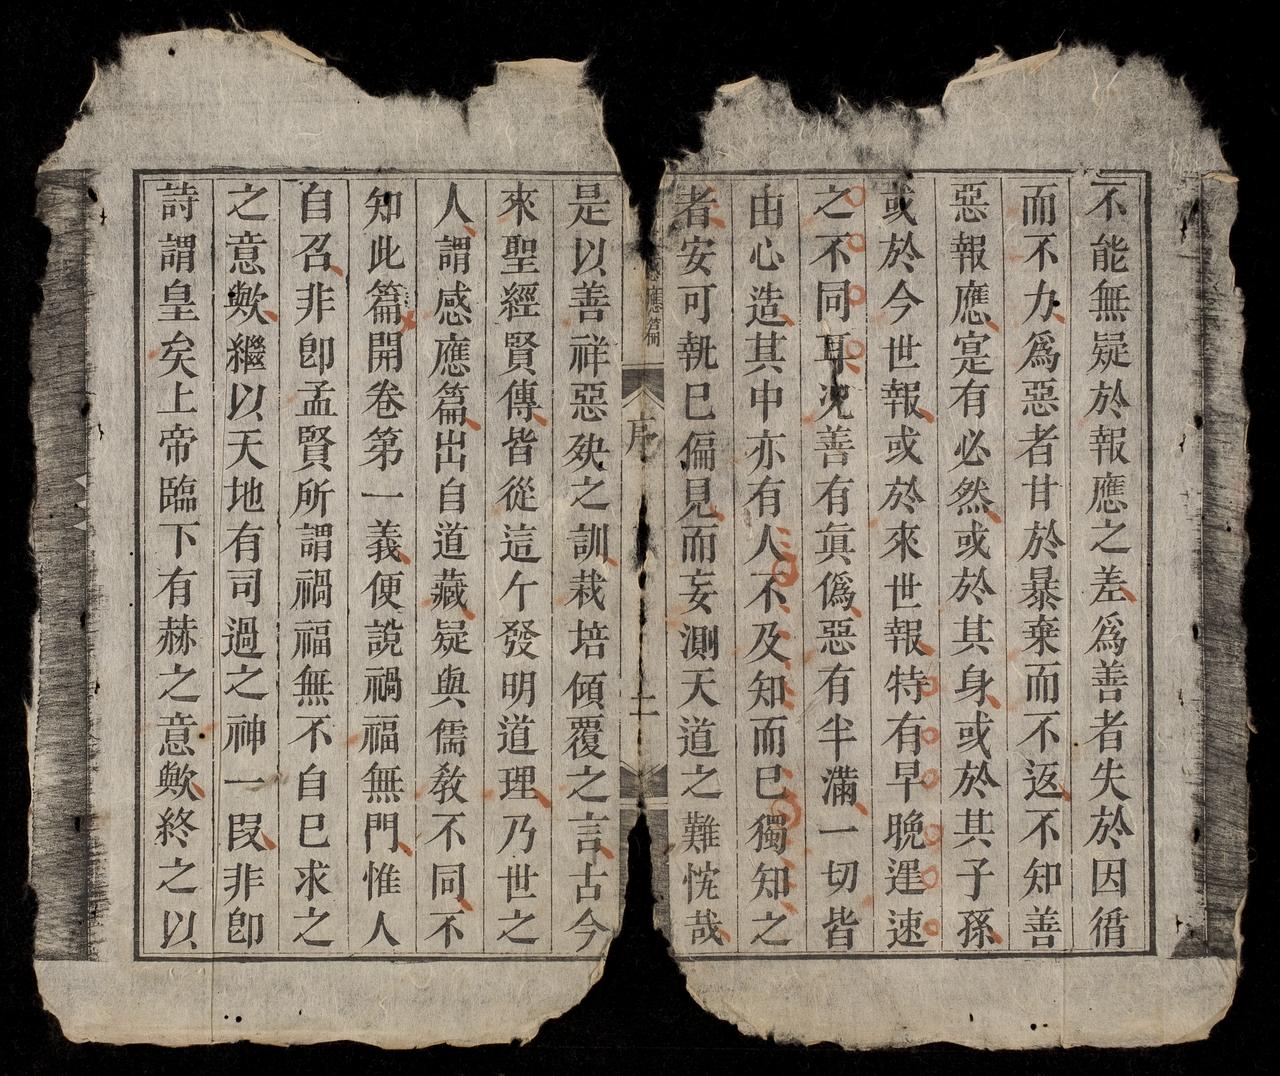 不能無疑於報應之差為善者失於因循
而不力為惡者甘於暴棄而不返不知善
惡報應寔有必然或於其身或於其子孫
或於今世報或於來世報特有早晚遲速
之不同耳况善有眞僞惡有半滿一切皆
由心造其中亦有人不及知而巳獨知之
者安可執巳偏見而妄測天道之難忱哉
應篇
序
十一
是以善祥惡殃之訓栽培傾覆之言古今
來聖經賢傳皆從這个發明道理乃世之
人謂感應篇出自道藏疑與儒教不同不
知此篇開卷第一義便說禍福無門惟人
自召非卽孟賢所謂禍福無不自巳求之
之意歟繼以天地有司過之神一叚非卽
詩謂皇矣上帝臨下有赫之意歟終之以